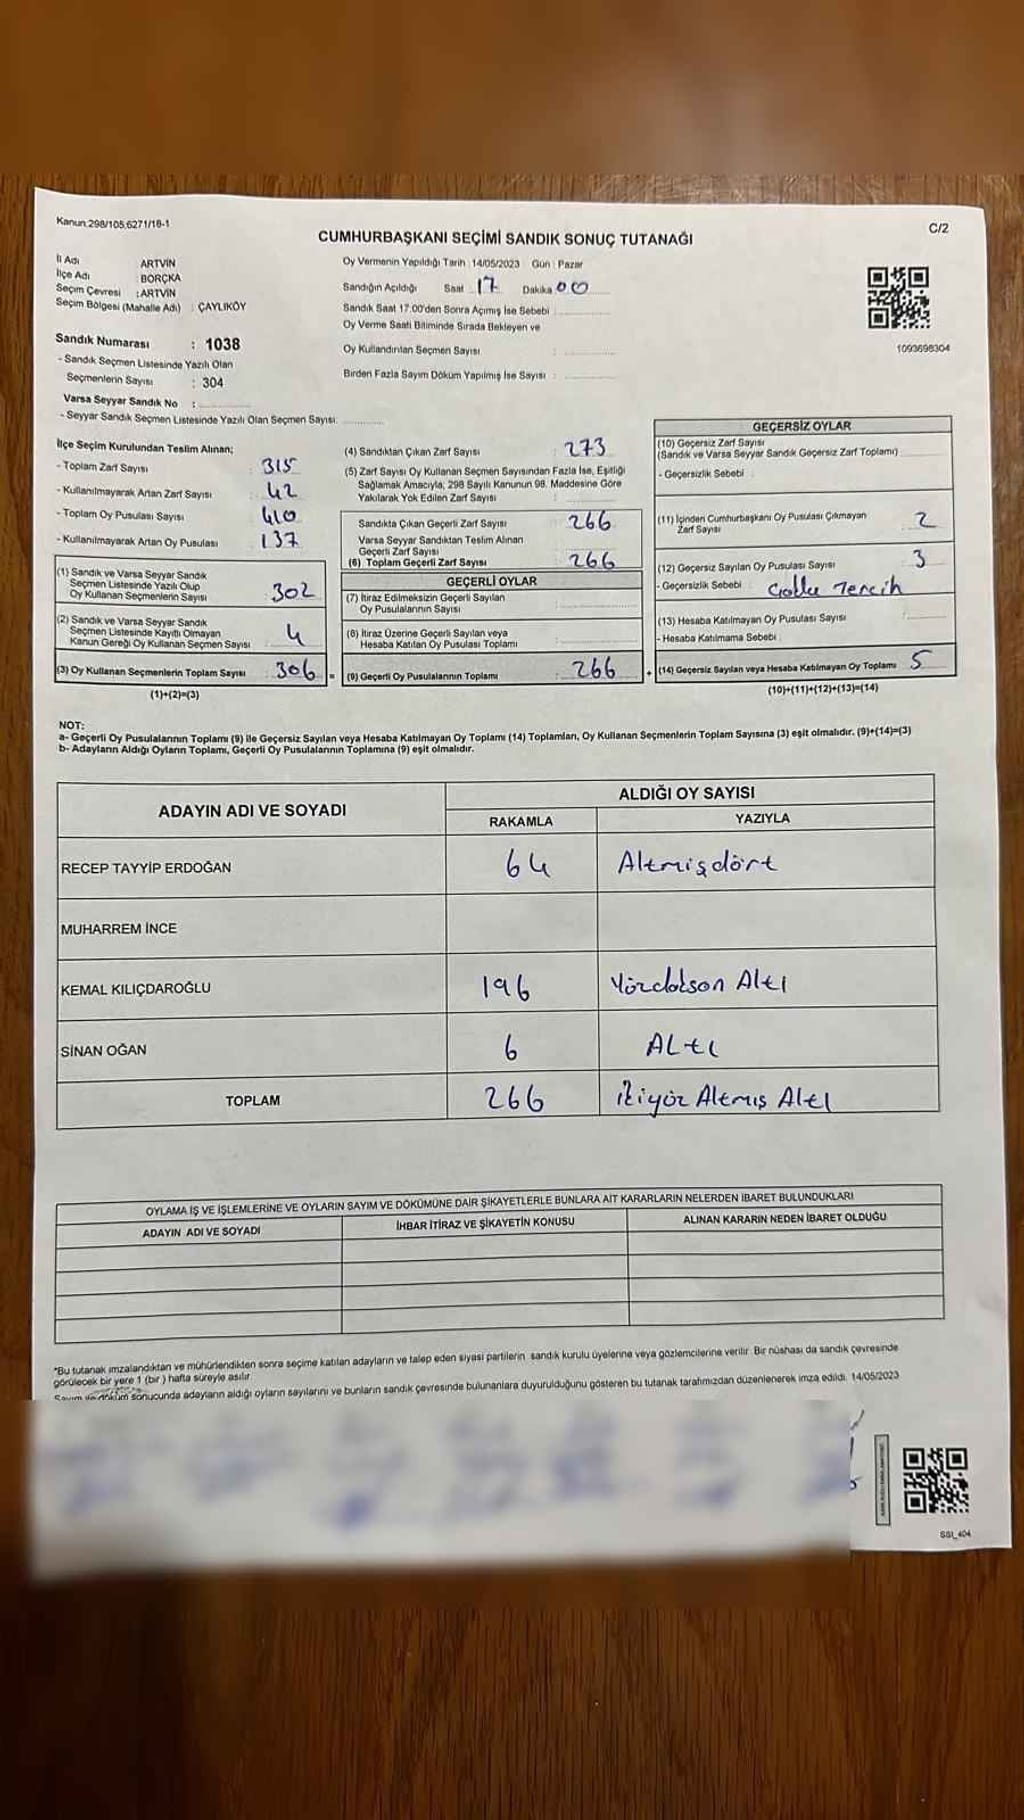 Kanun.298/105,6271/16-1
C/2
CUMHURBAŞKANI SEÇİMİ SANDIK SONUÇ TUTANAĞI
İl Adı ARTVİN
İlçe Adı BORÇKA
Seçim Çevresi : ARTVİN
Seçim Bölgesi (Mahalle Adı) : ÇAYLIKÖY
Oy Vermenin Yapıldığı Tarih : 14/05/2023 Gün : Pazar
Sandığın Açıldığı Saat 17 Dakika 00
Sandık Saat 17.00'den Sonra Açımış İse Sebebi
Oy Verme Saati Bitiminde Sırada Bekleyen ve
Oy Kullandırılan Seçmen Sayısı :
Birden Fazla Sayım Döküm Yapılmış İse Sayısı :
1093698304
Sandık Numarası : 1038
- Sandık Seçmen Listesinde Yazılı Olan
Seçmenlerin Sayısı : 304
Varsa Seyyar Sandık No :
- Seyyar Sandık Seçmen Listesinde Yazılı Olan Seçmen Sayısı:
İlçe Seçim Kurulundan Teslim Alınan;
- Toplam Zarf Sayısı 315
- Kullanılmayarak Artan Zarf Sayısı 42
- Toplam Oy Pusulası Sayısı 410
- Kullanılmayarak Artan Oy Pusulası 137
(1) Sandık ve Varsa Seyyar Sandık
Seçmen Listesinde Yazılı Olup
Oy Kullanan Seçmenlerin Sayısı 302
(2) Sandık ve Varsa Seyyar Sandık
Seçmen Listesinde Kayıtlı Olmayan
Kanun Gereği Oy Kullanan Seçmen Sayısı 4
(3) Oy Kullanan Seçmenlerin Toplam Sayısı 306 =
(1)+(2)=(3)
(4) Sandıktan Çıkan Zarf Sayısı : 273
(5) Zarf Sayısı Oy Kullanan Seçmen Sayısından Fazla İse, Eşitliği
Sağlamak Amacıyla; 298 Sayılı Kanunun 98. Maddesine Göre
Yakılarak Yok Edilen Zarf Sayısı :
Sandıkta Çıkan Geçerli Zarf Sayısı 266
Varsa Seyyar Sandıktan Teslim Alınan
Geçerli Zarf Sayısı
(6) Toplam Geçerli Zarf Sayısı 266
GEÇERLİ OYLAR
(7) İtiraz Edilmeksizin Geçerli Sayılan
Oy Pusulalarının Sayısı :
(8) İtiraz Üzerine Geçerli Sayılan veya
Hesaba Katılan Oy Pusulası Toplamı
(9) Geçerli Oy Pusulalarının Toplamı : 266 +
GEÇERSİZ OYLAR
(10) Geçersiz Zarf Sayısı
(Sandık ve Varsa Seyyar Sandık Geçersiz Zarf Toplamı)
- Geçersizlik Sebebi :
(11) İçinden Cumhurbaşkanı Oy Pusulası Çıkmayan
Zarf Sayısı 2
(12) Geçersiz Sayılan Oy Pusulası Sayısı 3
- Geçersizlik Sebebi : Çoklu Tercih
(13) Hesaba Katılmayan Oy Pusulası Sayısı
- Hesaba Katılmama Sebebi :
(14) Geçersiz Sayılan veya Hesaba Katılmayan Oy Toplamı 5
(10)+(11)+(12)+(13)=(14)
NOT:
a- Geçerli Oy Pusulalarının Toplamı (9) ile Geçersiz Sayılan veya Hesaba Katılmayan Oy Toplamı (14) Toplamları, Oy Kullanan Seçmenlerin Toplam Sayısına (3) eşit olmalıdır. (9)+(14)=(3)
b- Adayların Aldığı Oyların Toplamı, Geçerli Oy Pusulalarının Toplamına (9) eşit olmalıdır.
ADAYIN ADI VE SOYADI ALDIĞI OY SAYISI
RAKAMLA YAZIYLA
RECEP TAYYİP ERDOĞAN 64 Altmışdört
MUHARREM İNCE
KEMAL KILIÇDAROĞLU 196 Yüzdoksan Altı
SİNAN OĞAN 6 Altı
TOPLAM 266 ikiyüz Altmış Altı
OYLAMA İŞ VE İŞLEMLERİNE VE OYLARIN SAYIM VE DÖKÜMÜNE DAİR ŞİKAYETLERLE BUNLARA AİT KARARLARIN NELERDEN İBARET BULUNDUKLARI
ADAYIN ADI VE SOYADI İHBAR İTİRAZ VE ŞİKAYETİN KONUSU ALINAN KARARIN NEDEN İBARET OLDUĞU
*Bu tutanak imzalandıktan ve mühürlendikten sonra seçime katılan adayların ve talep eden siyasi partilerin sandık kurulu üyelerine veya gözlemcilerine verilir. Bir nüshası da sandık çevresinde
görülecek bir yere 1 (bir) hafta süreyle asılır.
Sayım ve döküm sonucunda adayların aldığı oyların sayılarını ve bunların sandık çevresinde bulunanlara duyurulduğunu gösteren bu tutanak tarafımızdan düzenlenerek imza edildi. 14/05/2023
SSI_404